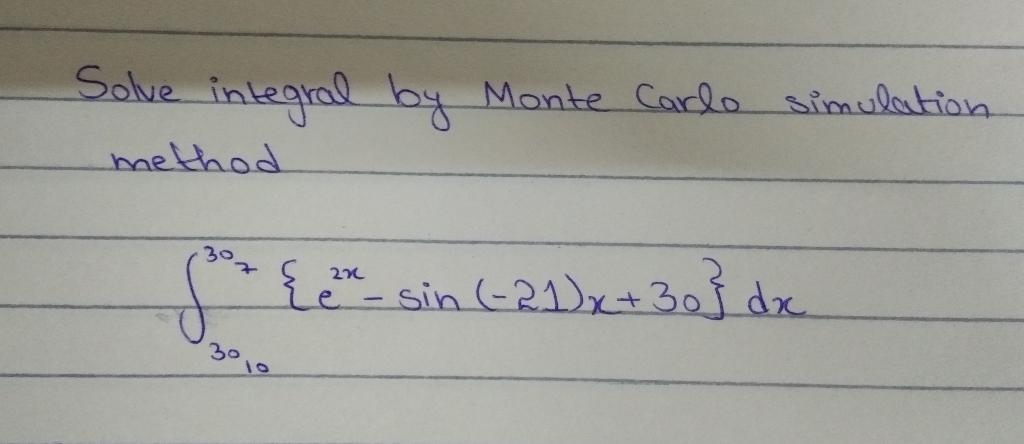 Solve integral by Monte Carlo simulation
method
∫₃₀₁₀^30₇ {e^2x - sin (-21)x + 30} dx